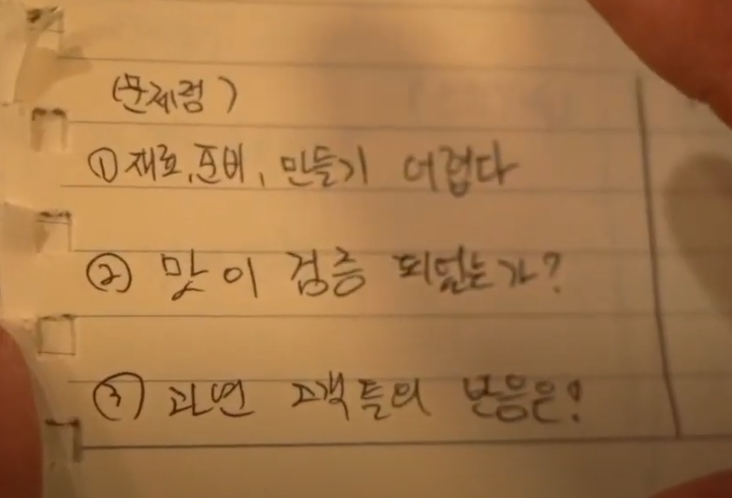 (문제점)
① 재료, 준비, 만들기 어렵다
② 맛이 검증 되었는가?
③ 과연 고객들의 반응은?